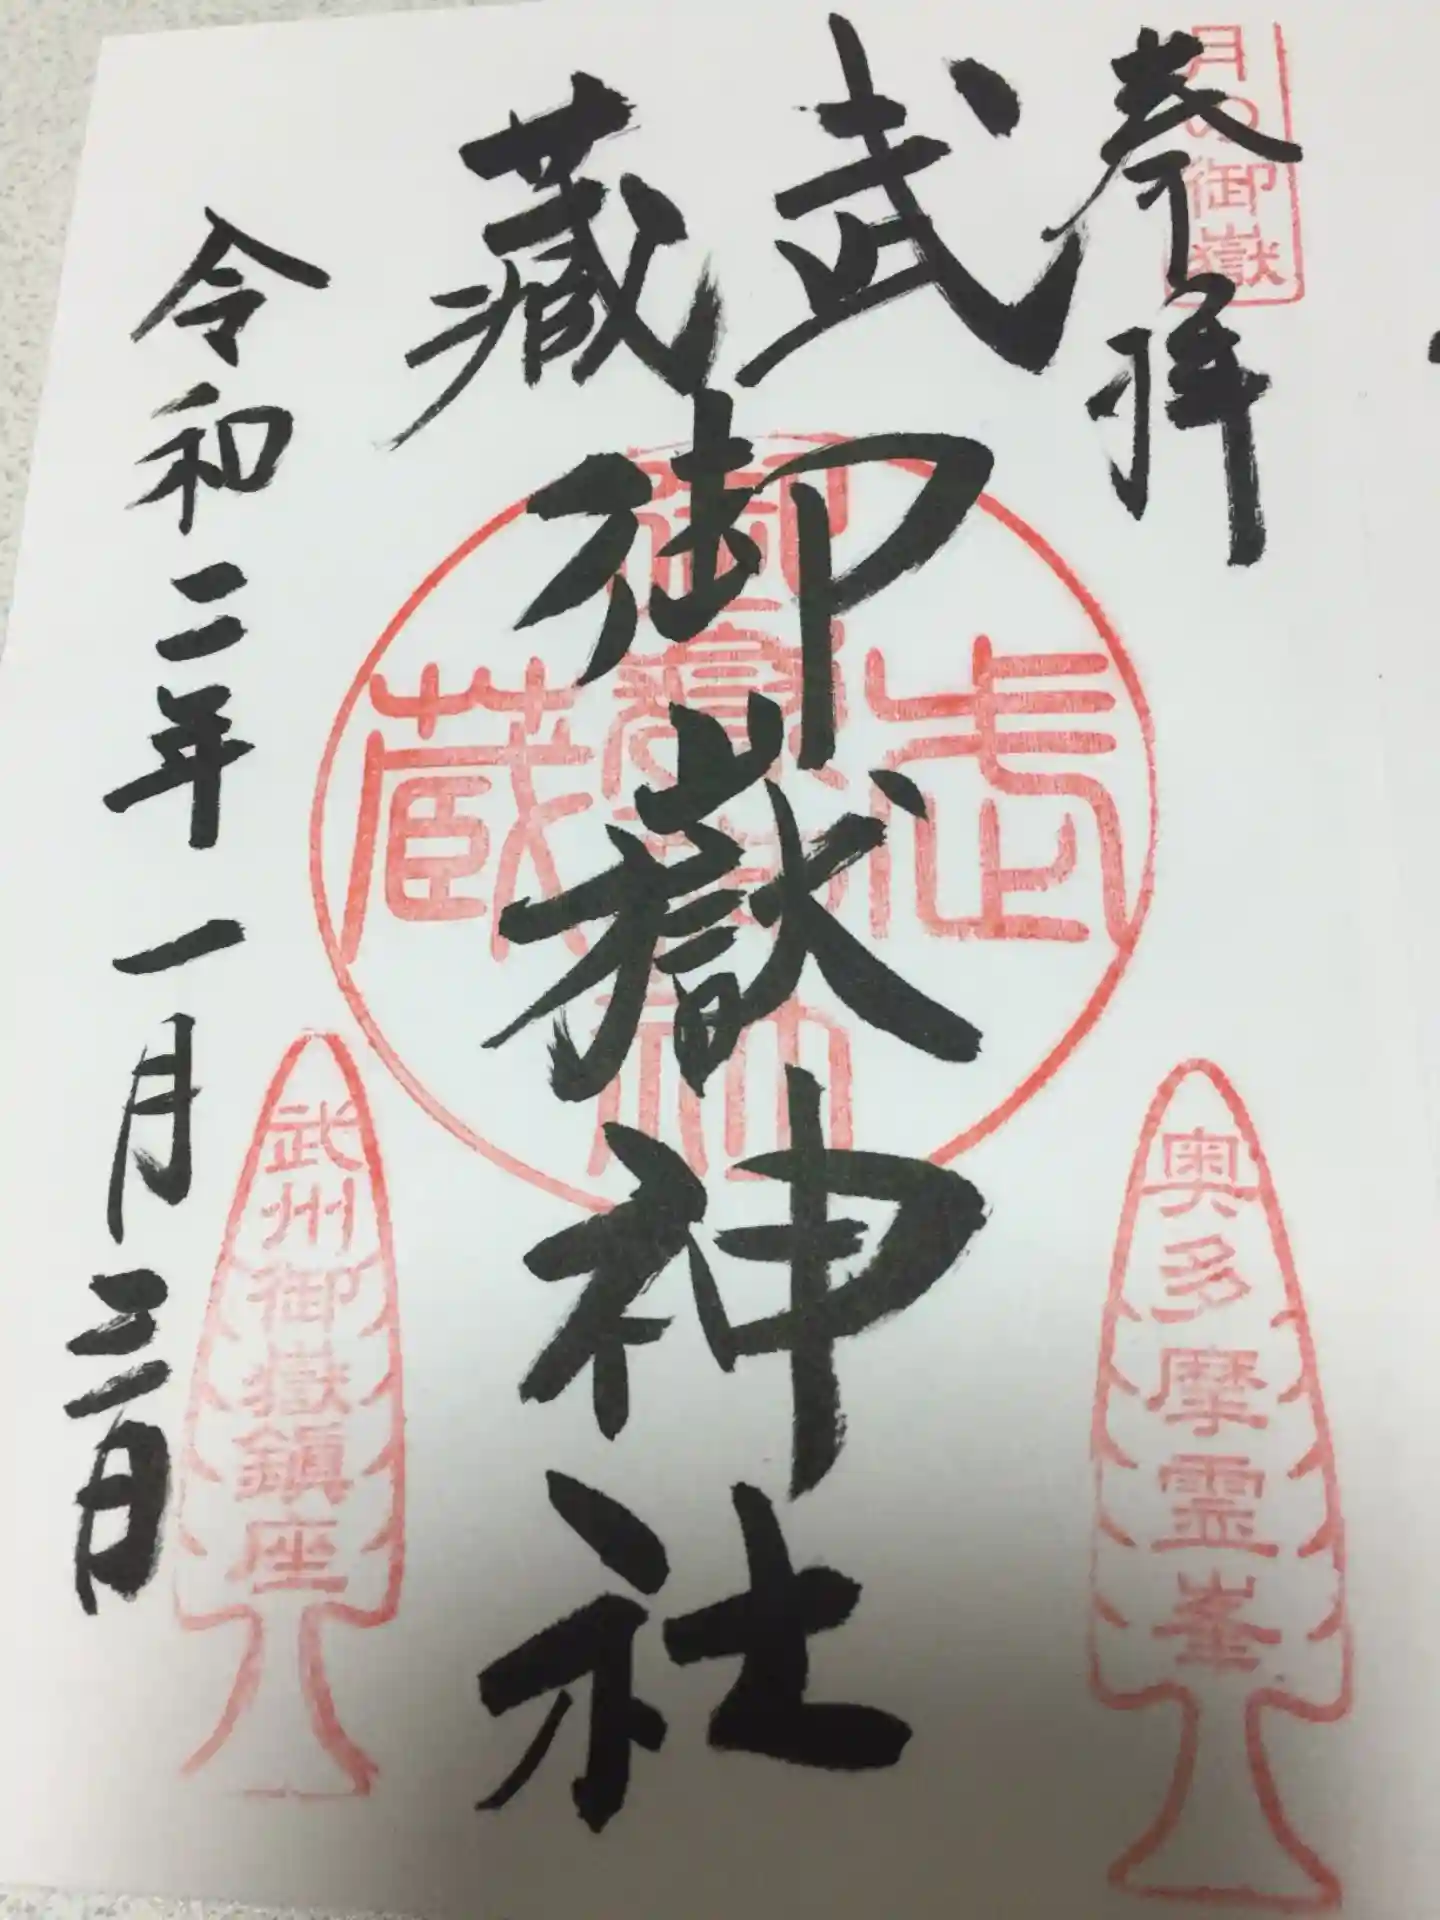 月の御嶽
奉拝
武蔵
御嶽神社
令和二年一月三日
武蔵御嶽神社
奥多摩霊峯
武州御嶽鎮座